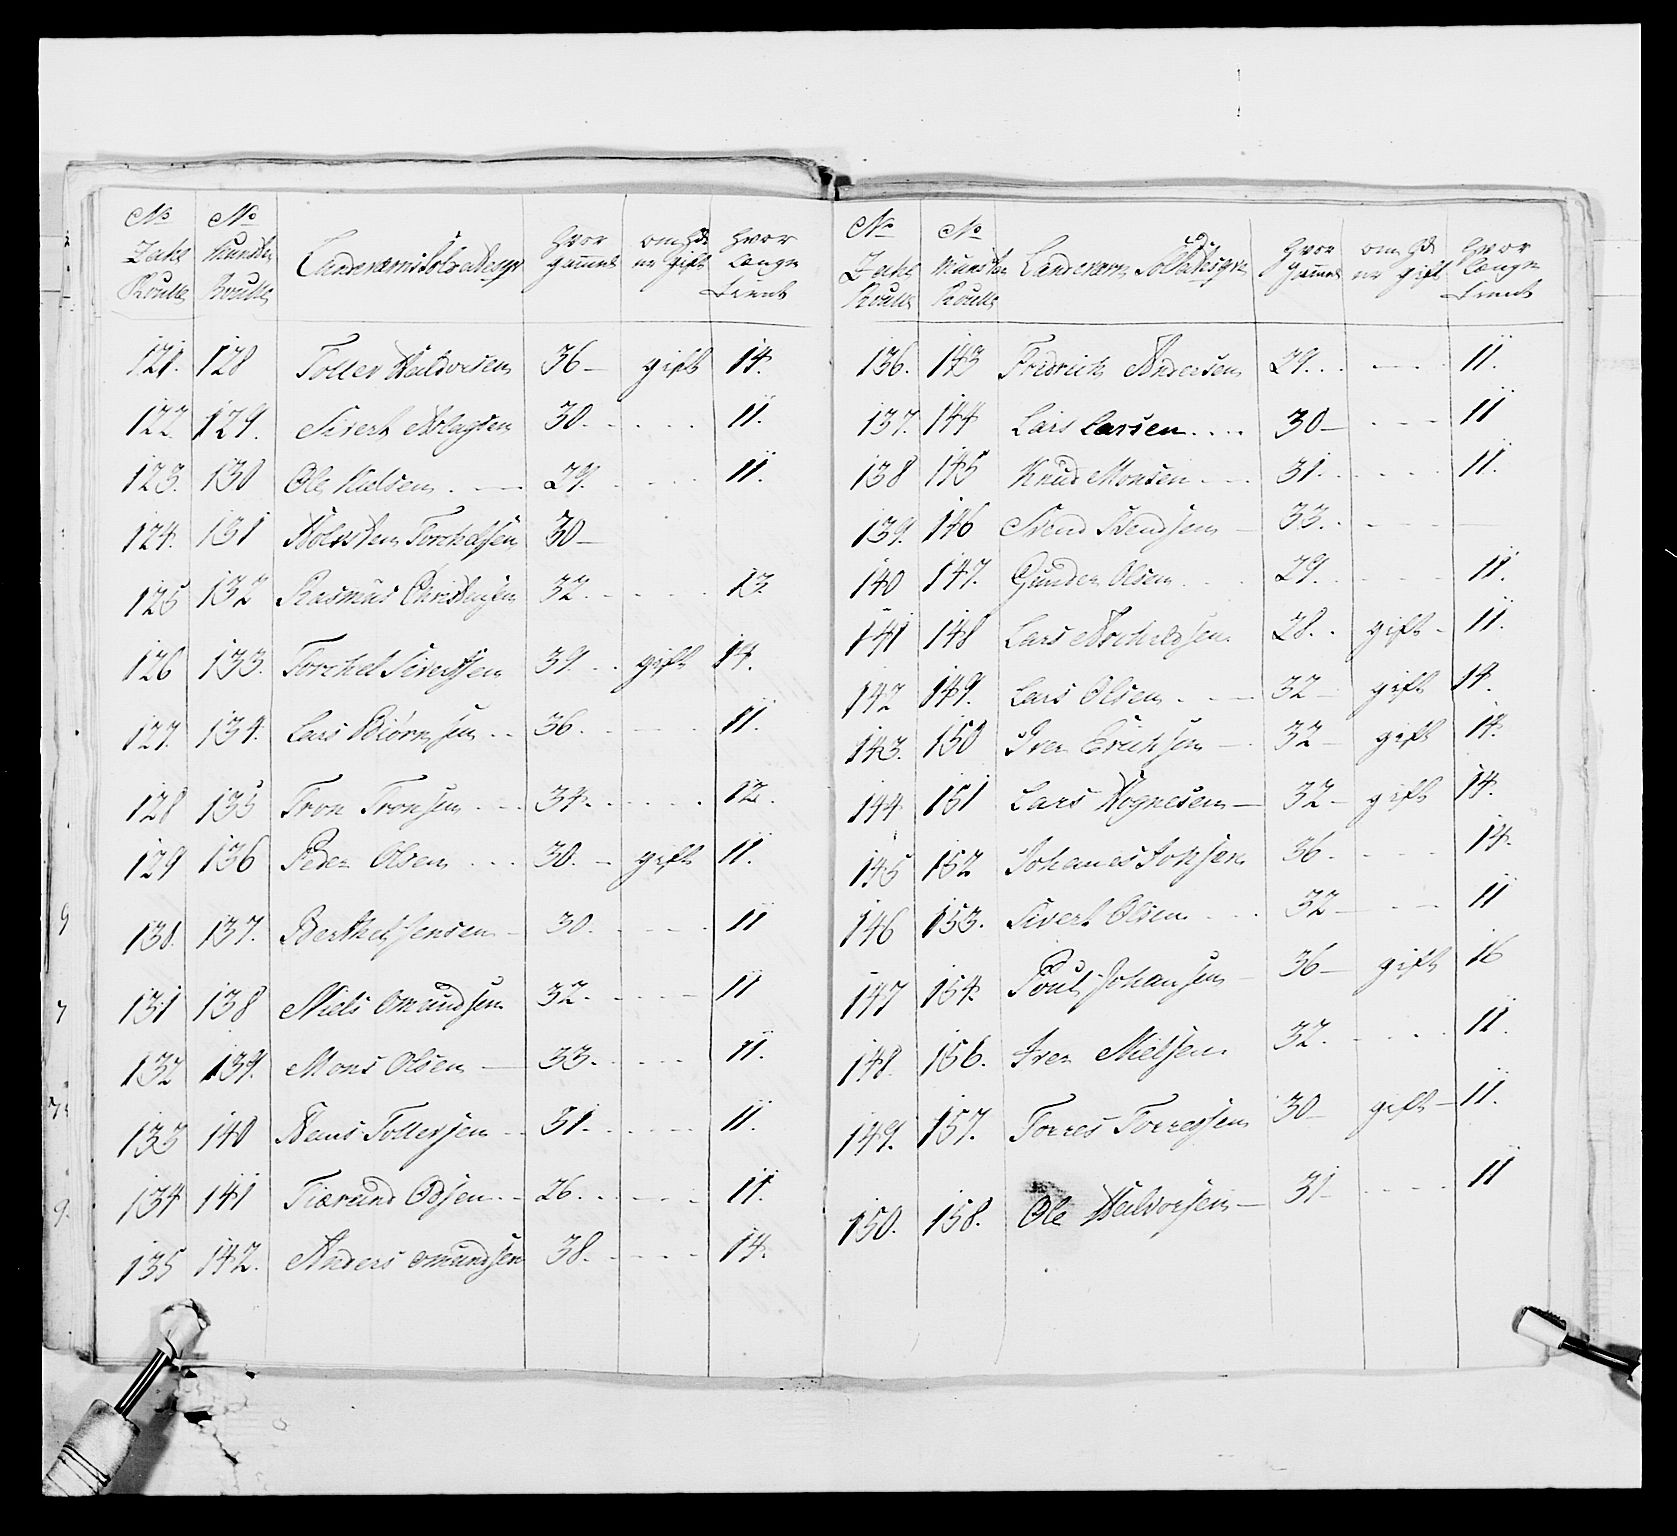 No No
Hvor om de Hvor
Rulle Rulle gammel er gift Længe tient
121. 128 Toller Haldorsen 36 – gift 14.
122. 129. Sivert Aslagsen 30. . . . . . 11.
123. 130 Ole Nielsen . — 29. . . . . 11.
124. 131 Torchelsen 30 –
125 132 Rasmus Christensen 32. . . . . . 13
126 133. Torchel Sivertsen 39. . . gift 14.
127. 134. Lars Biørnsen . . 36. . . . . . 11.
128 135 Tron Tronsen . . . 34. . . . . . 12.
129 136 Peder Olsen . . . 30. – gift 11.
130. 137. Berthel Jensen – 30. . . . . 11
131 138 Niels Omundsen 32. . . . – 11
132 139. Mons Olsen — 33. . . . . 11.
133 140 Tollersen – 31. . . . . . 11.
134 141 Olsen . . 26. . . . . . 11.
135 142. Anders omundsen 38. . . . . 14.
No No
Hvor om de Hvor
Rulle Rulle gammel er gift Længe tient
136. 143 Fredrich Andersen 29. . . – . . 11.
137. 144 Lars Larsen . . . . 30 – . . – 11
138 145 Knud Monsen . — 31. . . . . 11.
139. 146 Svend Svendsen – 33. . . –
140 147. Gunder Olsen . . . 29. . . . . 11.
141 148 Lars 28. . gift – 11.
142 149. Lars Olsen . . — 32 – gift 14.
143. 150 Iver Erichsen — 32 – gift 14.
144 151 Lars Aognesen — 32 – gift 14.
145 152 Johanes Johsen 36. . . . . 14.
146 153. Sivert Olsen . . . 32 – . – 11
147 154. Poul Johansen – 36 – gift 16
148. 156. Iver Nielsen. 32. . . . . 11.
149. 157. Torres Torresen 30 – gift – 11.
150. 158. Ole Haldorsen — 31 – . . . . 11